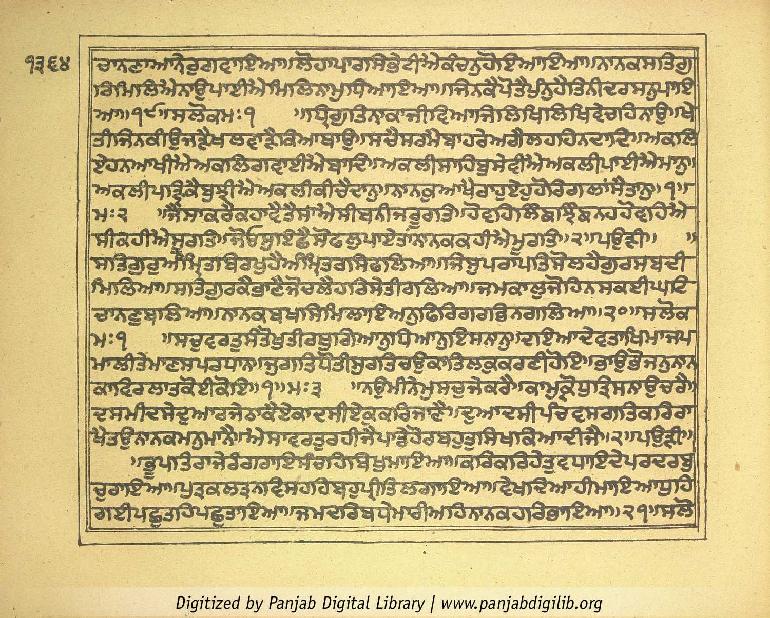 ੧੩੬੪
ਚਾਨਣੁਆਨੇਰੁਗਵਾਇਆ॥ਲੋਹਾਪਾਰਸਿਭੇਟੀਐਕੰਚਨੁਹੋਇਆਇਆ॥ਨਾਨਕਸਤਿਗੁ
ਰਿਮਿਲਿਐਨਾਉਪਾਈਐਮਿਲਿਨਾਮੁਧਿਆਇਆ॥ਜਿਨਕੈਪੋਤੈਪੁੰਨੁਹੈਤਿਨੀਦਰਸਨੁਪਾਇ
ਆ॥੧੯॥ਸਲੋਕਮਃ੧ ॥ਧ੍ਰਿਗੁਤਿਨਾਕਾਜੀਵਿਆਜਿਲਿਖਿਲਿਖਿਵੇਚਹਿਨਾਉ॥ਖੇ
ਤੀਜਿਨਕੀਉਜੜੈਖਲਵਾੜੇਕਿਆਥਾਉ॥ਸਚੈਸਰਮੈਬਾਹਰੇਅਗੈਲਹਹਿਨਦਾਦਿ॥ਅਕਲਿ
ਏਹਨਆਖੀਐਅਕਲਿਗਵਾਈਐਬਾਦਿ॥ਅਕਲੀਸਾਹਿਬੁਸੇਵੀਐਅਕਲੀਪਾਈਐਮਾਨੁ॥
ਅਕਲੀਪੜ੍ਹਿਕੈਬੁਝੀਐਅਕਲੀਕੀਚੈਦਾਨੁ॥ਨਾਨਕੁਆਖੈਰਾਹੁਏਹੁਹੋਰਿਗਲਾਂਸੈਤਾਨੁ॥੧॥
ਮਃ੨ ॥ਜੈਸਾਕਰੈਕਹਾਵੈਤੈਸਾਐਸੀਬਨੀਜਰੂਰਤਿ॥ਹੋਵਹਿਲਿੰਙਝਿੰਙਨਹਹੋਵਹਿਐ
ਸੀਕਹੀਐਸੂਰਤਿ॥ਜੋਓਸੁਇਛੇਸੋਫਲੁਪਾਏਤਾਂਨਾਨਕਕਹੀਐਮੂਰਤਿ॥੨॥ਪਉੜੀ॥ ॥
ਸਤਿਗੁਰੁਅੰਮ੍ਰਿਤਬਿਰਖੁਹੈਅੰਮ੍ਰਿਤਰਸਿਫਲਿਆ॥ਜਿਸੁਪਰਾਪਤਿਸੋਲਹੈਗੁਰਸਬਦੀ
ਮਿਲਿਆ॥ਸਤਿਗੁਰਕੈਭਾਣੈਜੋਚਲੈਹਰਿਸੇਤੀਰਲਿਆ॥ਜਮਕਾਲੁਜੋਹਿਨਸਕਈਘਟਿ
ਚਾਨਣੁਬਲਿਆ॥ਨਾਨਕਬਖਸਿਮਿਲਾਇਅਨੁਫਿਰਿਗਰਭਿਨਗਲਿਆ॥੨੦॥ਸਲੋਕ
ਮਃ੧ ॥ਸਚੁਵਰਤੁਸੰਤੋਖੁਤੀਰਥੁਗਿਆਨੁਧਿਆਨੁਇਸਨਾਨੁ॥ਦਇਆਦੇਵਤਾਖਿਮਾਜਪ
ਮਾਲੀਤੇਮਾਣਸਪਰਧਾਨ॥ਜੁਗਤਿਧੋਤੀਸੁਰਤਿਚਉਕਾਤਿਲਕੁਕਰਣੀਹੋਇ॥ਭਾਉਭੋਜਨੁਨਾਨ
ਕਾਵਿਰਲਾਤਕੋਈਕੋਇ॥੧॥ਮਃ੩ ॥ਨਉਮੀਨੇਮੁਸਚੁਜੇਕਰੈ॥ਕਾਮਕ੍ਰੋਧੁਤ੍ਰਿਸਨਾਉਚਰੈ॥
ਦਸਮੀਦਸੇਦੁਆਰਜੇਠਾਕੈਏਕਾਦਸੀਏਕੁਕਰਿਜਾਣੈ॥ਦੁਆਦਸੀਪੰਚਵਸਗਤਿਕਰਿਰਾ
ਖੈਤਉਨਾਨਕਮਨੁਮਾਨੈ॥ਐਸਾਵਰਤੁਰਹੀਜੈਪਾਡੇਹੋਰਬਹੁਤੁਸਿਖਕਿਆਦੀਜੈ॥੨॥ਪਉੜੀ॥
॥ਭੂਪਤਿਰਾਜੇਰੰਗਰਾਇਸੰਚਹਿਬਿਖੁਮਾਇਆ॥ਕਰਿਕਰਿਹੇਤੁਵਧਾਇਦੇਪਰਦਰਬੁ
ਚੁਰਾਇਆ॥ਪੁਤ੍ਰਕਲਤ੍ਰਨਵਿਸਹਹਿਬਹੁਪ੍ਰੀਤਿਲਗਾਇਆ॥ਵੇਖਦਿਆਹੀਮਾਇਆਧੁਹਿ
ਗਈਪਛੁਤਹਿਪਛੁਤਾਇਆ॥ਜਮਦਰਿਬਧੇਮਾਰੀਅਹਿਨਾਨਕਹਰਿਭਾਇਆ॥੨੧॥ਸਲੋ
Digitized by Panjab Digital Library | www.panjabdigilib.org